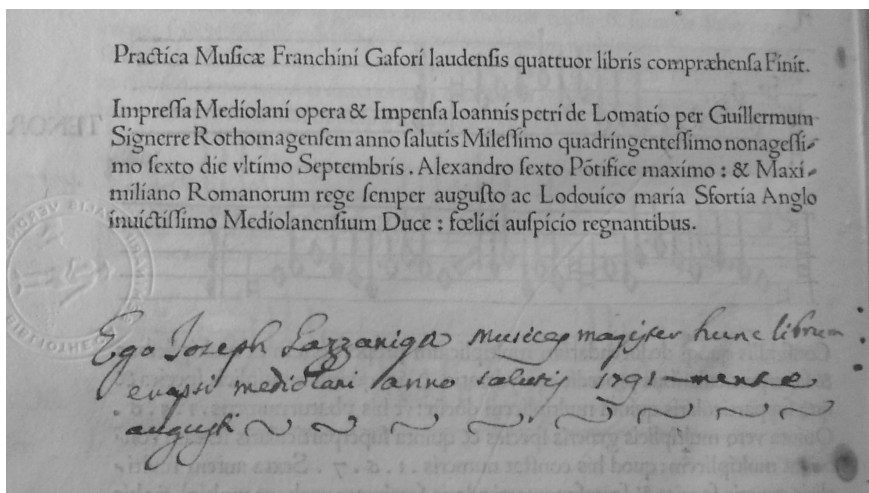 Practica Muſicæ Franchini Gafori laudenſis quattuor libris compræhenſa Finit.
Impreſſa Mediolani opera & Impenſa Ioannis petri de Lomatio per Guillermum
Signerre Rothomagenſem anno ſalutis Mileſſimo quadringenteſſimo nonageſſi-
mo ſexto die vltimo Septembris . Alexandro ſexto Põtifice maximo : & Maxi-
miliano Romanorum rege ſemper auguſto ac Lodouico maria Sfortia Anglo
inuictiſſimo Mediolanenſium Duce : fœlici auſpicio regnantibus.
Ego Joseph Lazzaniga musicæ magister hunc librum
evassi mediolani anno salutis 1791 mense
augusti